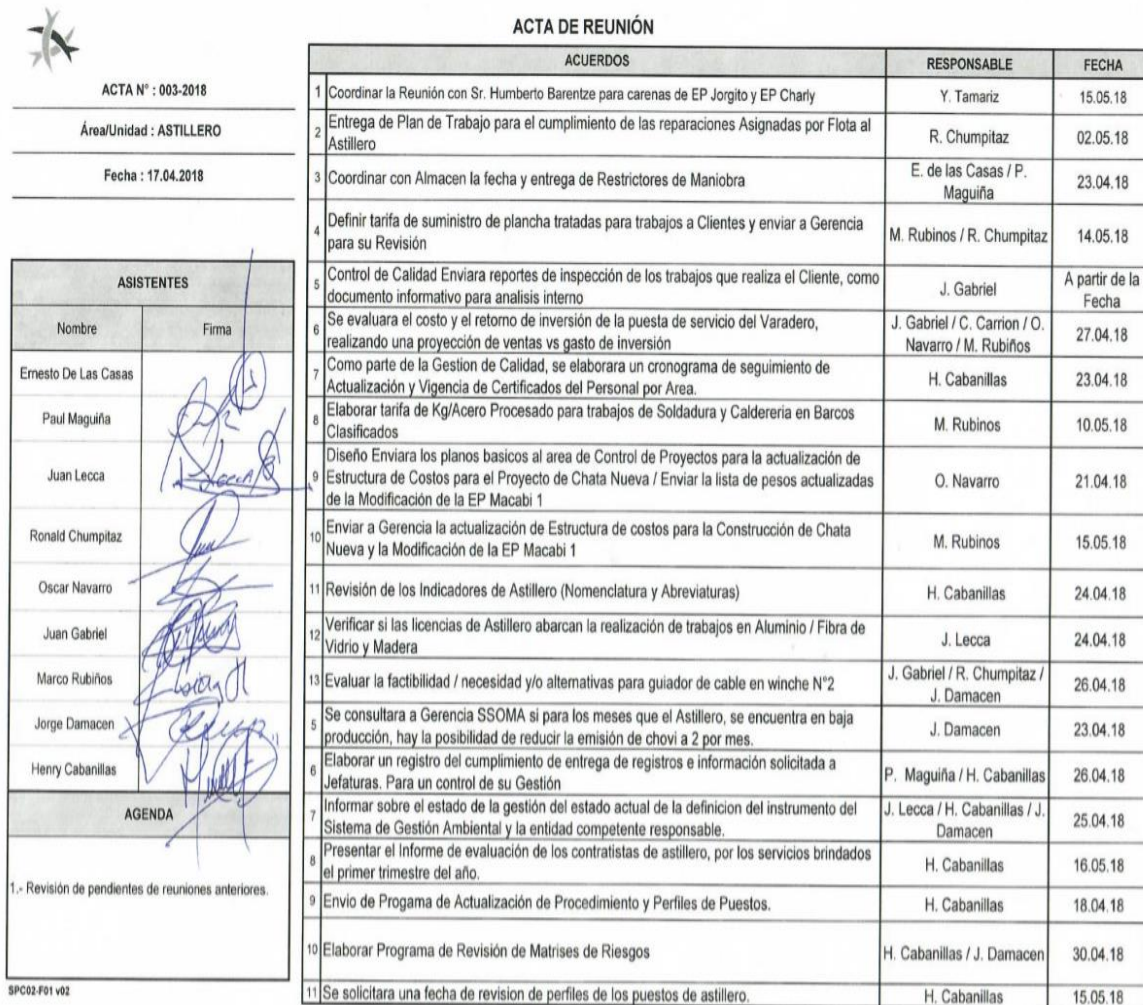 ACTA DE REUNIÓN
ACTA N° : 003-2018
Área/Unidad : ASTILLERO
Fecha : 17.04.2018
ASISTENTES
Nombre Firma
Ernesto De Las Casas
Paul Maguiña
Juan Lecca
Ronald Chumpitaz
Oscar Navarro
Juan Gabriel
Marco Rubiños
Jorge Damacen
Henry Cabanillas
AGENDA
1.- Revisión de pendientes de reuniones anteriores.
SPC02-F01 v02
ACUERDOS RESPONSABLE FECHA
1 Coordinar la Reunión con Sr. Humberto Barentze para carenas de EP Jorgito y EP Charly Y. Tamariz 15.05.18
2 Entrega de Plan de Trabajo para el cumplimiento de las reparaciones Asignadas por Flota al
Astillero R. Chumpitaz 02.05.18
3 Coordinar con Almacen la fecha y entrega de Restrictores de Maniobra E. de las Casas / P.
Maguiña 23.04.18
4 Definir tarifa de suministro de plancha tratadas para trabajos a Clientes y enviar a Gerencia
para su Revisión M. Rubinos / R. Chumpitaz 14.05.18
5 Control de Calidad Enviara reportes de inspección de los trabajos que realiza el Cliente, como
documento informativo para analisis interno J. Gabriel A partir de la
Fecha
6 Se evaluara el costo y el retorno de inversión de la puesta de servicio del Varadero,
realizando una proyección de ventas vs gasto de inversión J. Gabriel / C. Carrion / O.
Navarro / M. Rubiños 27.04.18
7 Como parte de la Gestion de Calidad, se elaborara un cronograma de seguimiento de
Actualización y Vigencia de Certificados del Personal por Area. H. Cabanillas 23.04.18
8 Elaborar tarifa de Kg/Acero Procesado para trabajos de Soldadura y Caldereria en Barcos
Clasificados M. Rubinos 10.05.18
9 Diseño Enviara los planos basicos al area de Control de Proyectos para la actualización de
Estructura de Costos para el Proyecto de Chata Nueva / Enviar la lista de pesos actualizadas
de la Modificación de la EP Macabi 1 O. Navarro 21.04.18
10 Enviar a Gerencia la actualización de Estructura de costos para la Construcción de Chata
Nueva y la Modificación de la EP Macabi 1 M. Rubinos 15.05.18
11 Revisión de los Indicadores de Astillero (Nomenclatura y Abreviaturas) H. Cabanillas 24.04.18
12 Verificar si las licencias de Astillero abarcan la realización de trabajos en Aluminio / Fibra de
Vidrio y Madera J. Lecca 24.04.18
13 Evaluar la factibilidad / necesidad y/o alternativas para guiador de cable en winche N°2 J. Gabriel / R. Chumpitaz /
J. Damacen 26.04.18
5 Se consultara a Gerencia SSOMA si para los meses que el Astillero, se encuentra en baja
producción, hay la posibilidad de reducir la emisión de chovi a 2 por mes. J. Damacen 23.04.18
6 Elaborar un registro del cumplimiento de entrega de registros e información solicitada a
Jefaturas. Para un control de su Gestión P. Maguiña / H. Cabanillas 26.04.18
7 Informar sobre el estado de la gestión del estado actual de la definicion del instrumento del
Sistema de Gestión Ambiental y la entidad competente responsable. J. Lecca / H. Cabanillas / J.
Damacen 25.04.18
8 Presentar el Informe de evaluación de los contratistas de astillero, por los servicios brindados
el primer trimestre del año. H. Cabanillas 16.05.18
9 Envio de Progama de Actualización de Procedimiento y Perfiles de Puestos. H. Cabanillas 18.04.18
10 Elaborar Programa de Revisión de Matrises de Riesgos H. Cabanillas / J. Damacen 30.04.18
11 Se solicitara una fecha de revision de perfiles de los puestos de astillero. H. Cabanillas 15.05.18